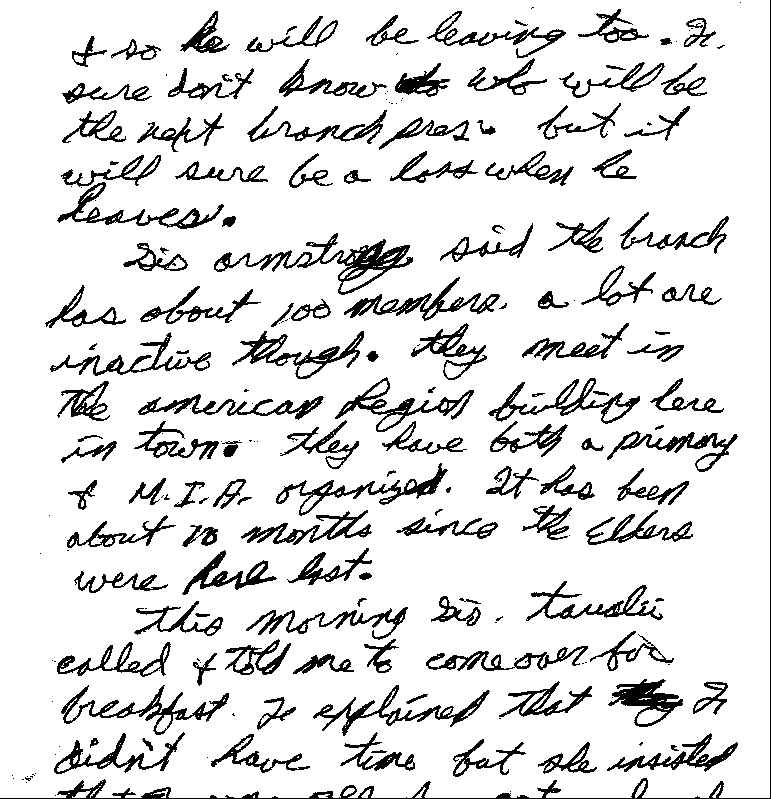 & so he will be leaving too. I
sure don't know who will be
the next branch pres. but it
will sure be a loss when he
leaves.
Sis armstrong said the branch
has about 100 members. a lot are
inactive though. they meet in
the american Legion building here
in town. they have both a primary
& M.I.A. organized. It has been
about 10 months since the Elders
were here last.
This morning Sis.
called & told me to come over for
breakfast. I explained that I
didn't have time but she insisted